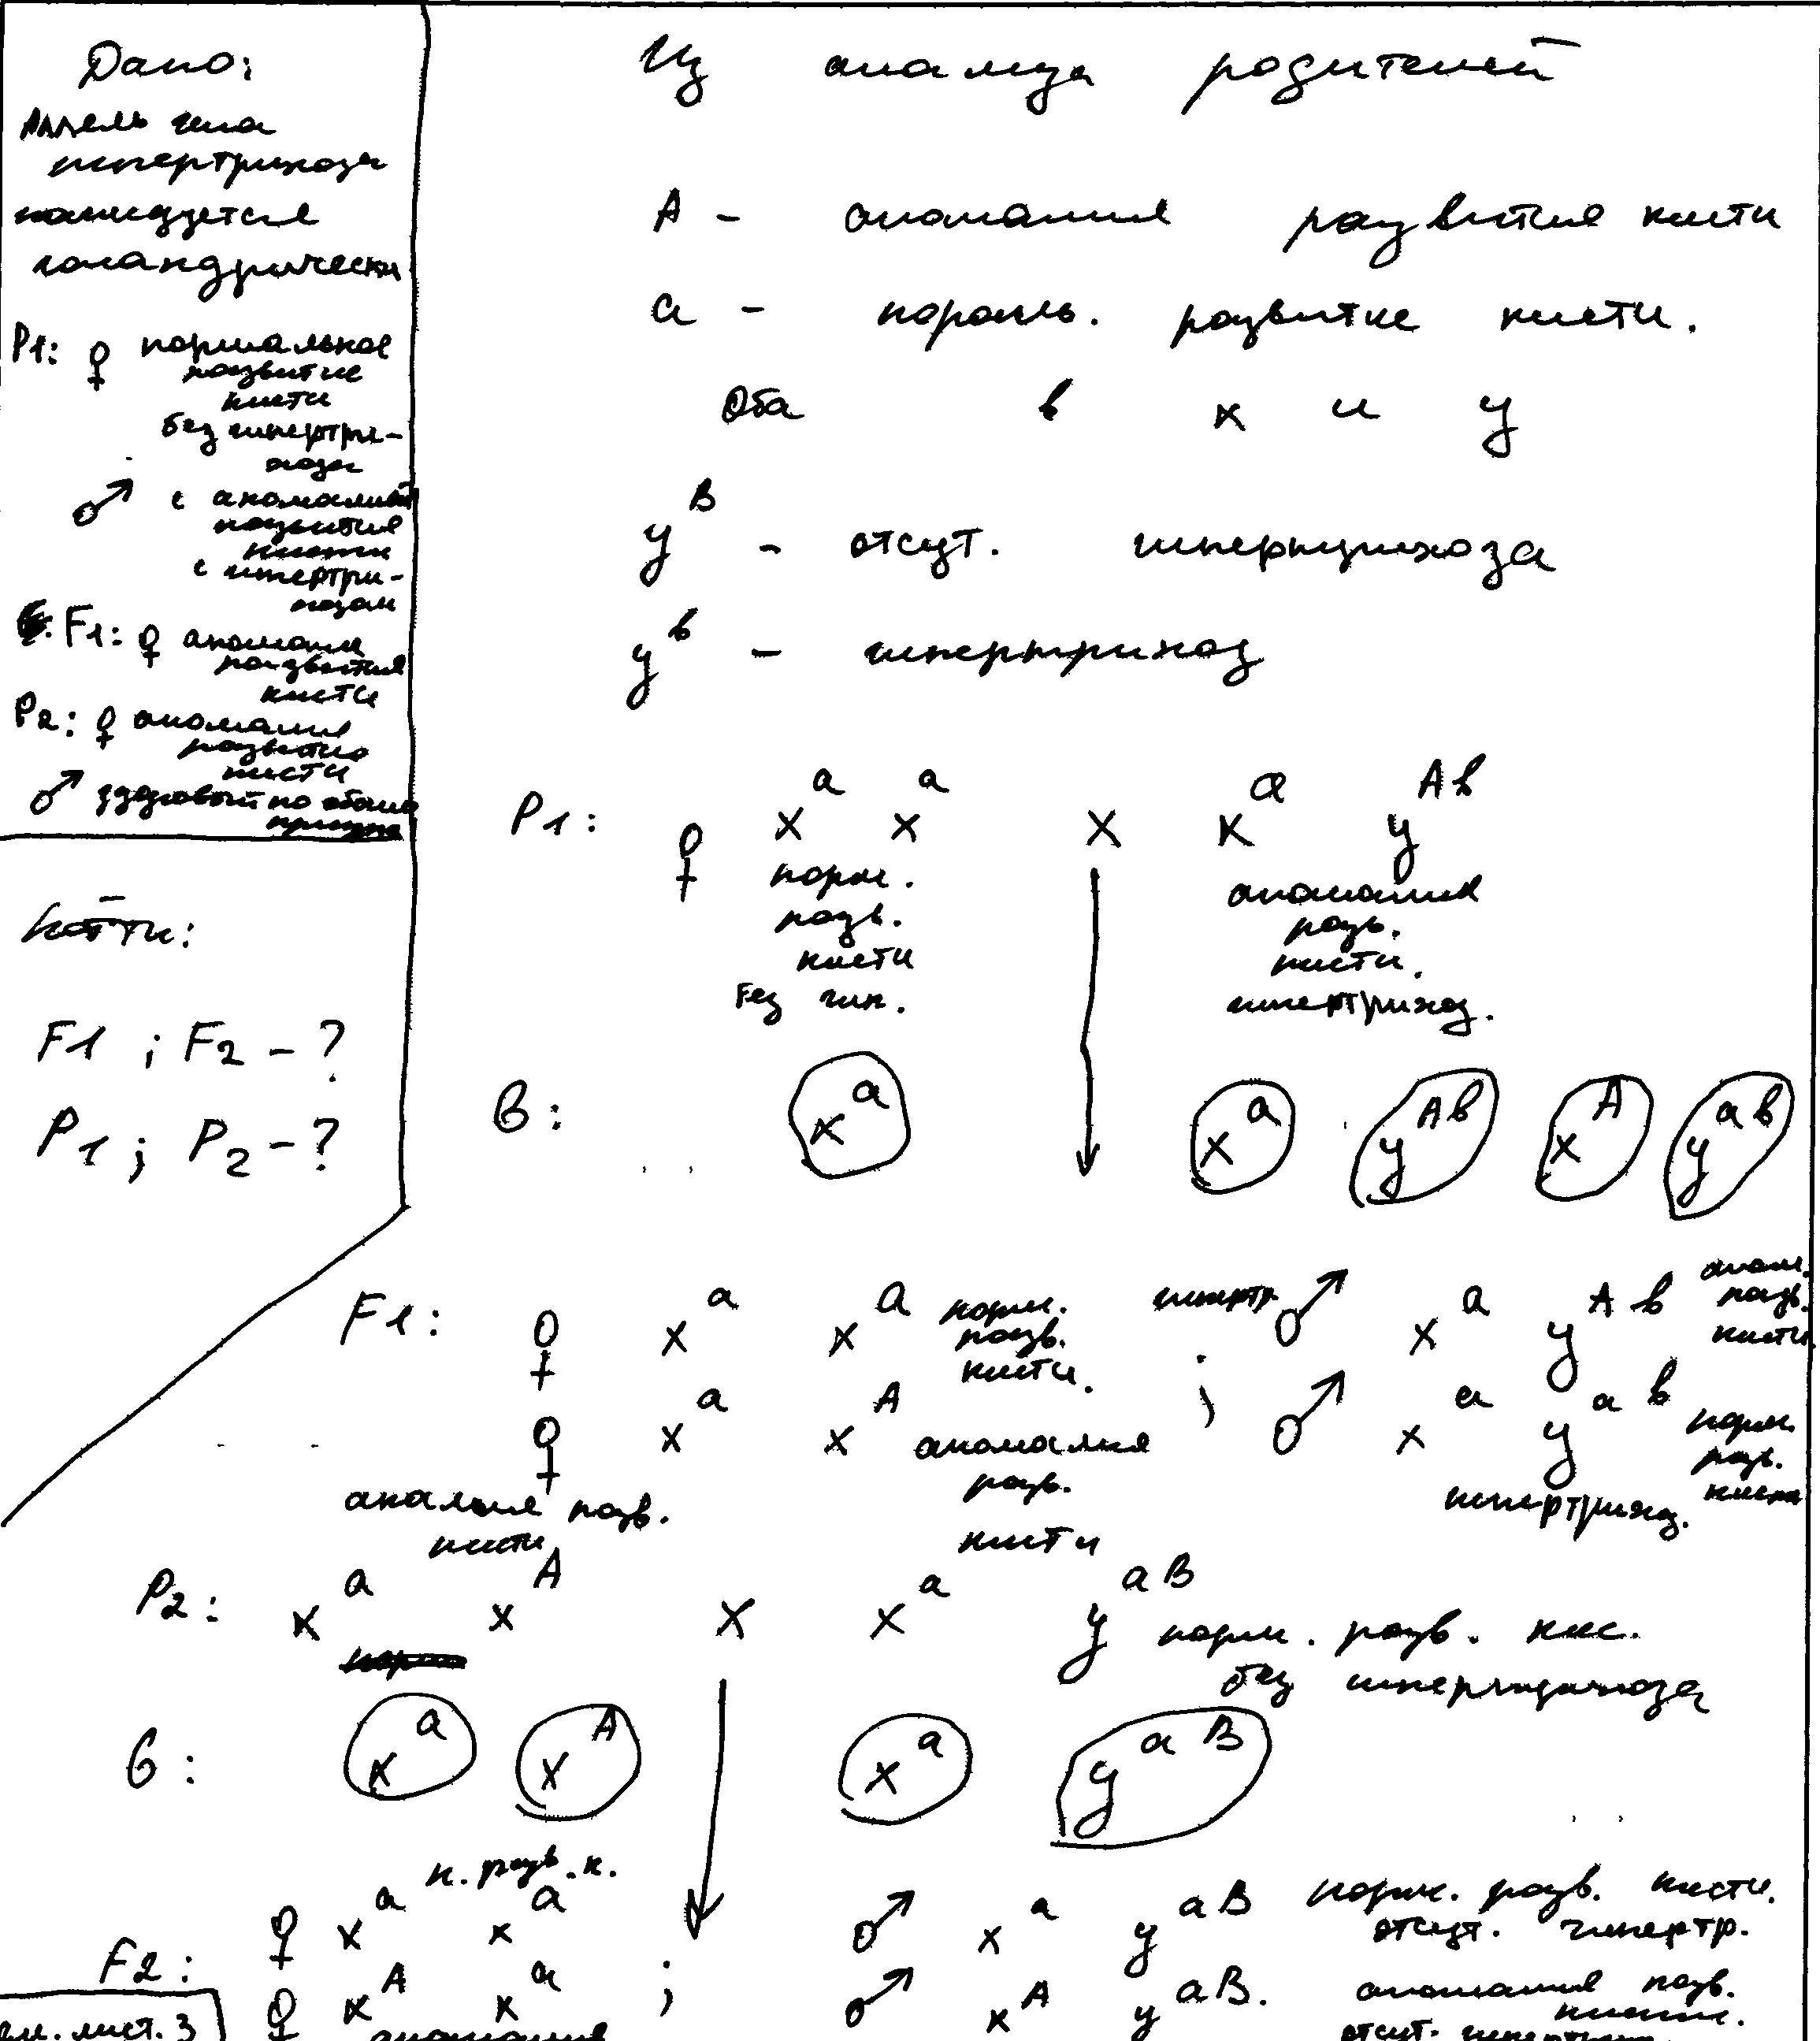 Дано:
Аллель гена
гипертрихоза
наследуется
голандрически
P1: ♀ нормальное
развитие
кисти
без гипертри-
хоза
♂ с аномалией
развития
кисти
с гипертри-
хозом
F1: ♀ аномалия
развития
кисти
P2: ♀ аномалия
развития
кисти
♂ здоровый по обоим
Найти:
F1 ; F2 - ?
P1 ; P2 - ?
Из анализа родителей
A - аномалия развития кисти
a - нормаль. развитие кисти.
Оба в x и y
y^B - отсут. гипертрихоза
y^b - гипертрихоз
P1: ♀ x^a x^a X x^a y^Ab
норм. аномалия
разв. разв.
кисти кисти.
без гип. гипертрихоз.
G: x^a x^a y^Ab x^A y^ab
F1: ♀ x^a x^a норм. разв. кисти. гипертр. ♂ x^a y^Ab аном. разв. кисти
♀ x^a x^A аномалия разв. кисти ; ♂ x^a y^ab норм. разв. кисти
гипертрихоз.
аномалия разв.
кисти
P2: x^a x^A X x^a y^aB норм. разв. кис.
без гипертрихоза
G: x^a x^A x^a y^aB
н. разв. к.
F2: ♀ x^a x^a ; ♂ x^a y^aB норм. разв. кисти.
отсут. гипертр.
♀ x^A x^a ♂ x^A y^aB. аномалия разв.
кисти.
аномалия отсут.
см. лист. 3